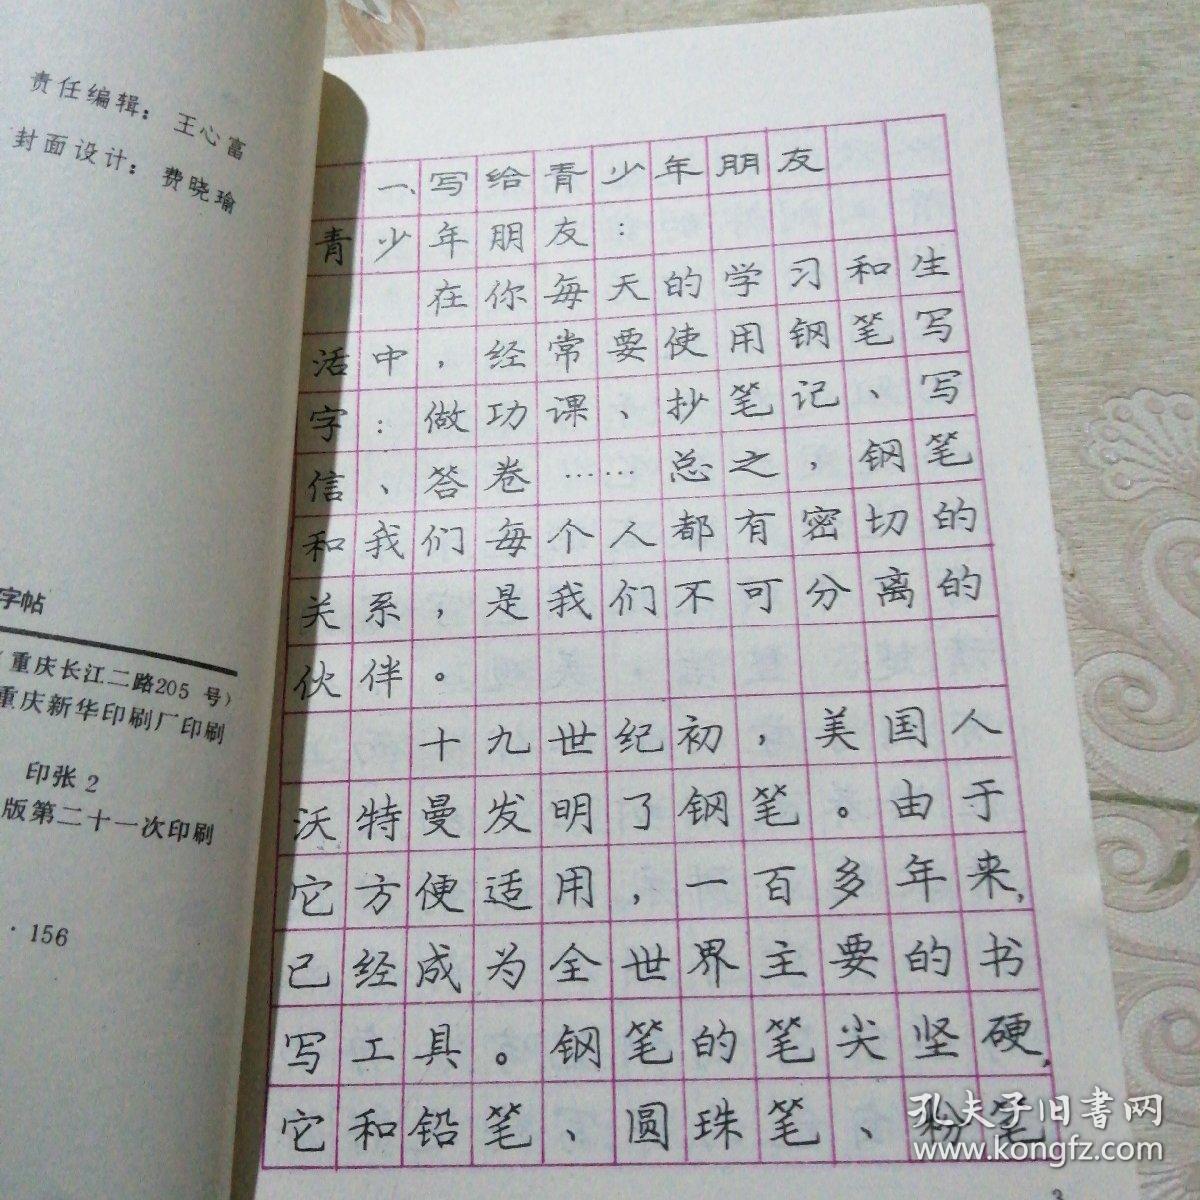 责任编辑：王心富
封面设计：费晓瑜
字帖
（重庆长江二路205 号）
重庆新华印刷厂印刷
印张 2
版第二十一次印刷
· 156
一、写给青少年朋友
青少年朋友：
在你每天的学习和生
活中，经常要使用钢笔写
字：做功课、抄笔记、写
信、答卷……总之，钢笔
和我们每个人都有密切的
关系，是我们不可分离的
伙伴。
十九世纪初，美国人
沃特曼发明了钢笔。由于
它方便适用，一百多年来，
已经成为全世界主要的书
写工具。钢笔的笔尖坚硬，
它和铅笔、圆珠笔、粉笔
3
孔夫子旧书网
www.kongfz.com